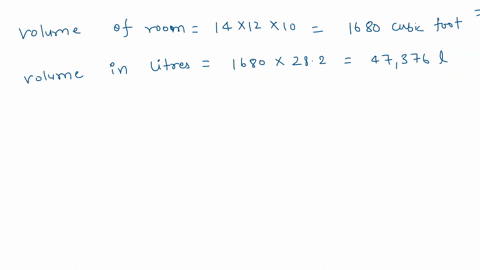 volume of room = 14 × 12 × 10 = 1680 cubic foot =
volume in litres = 1680 × 28.2 = 47,376 l